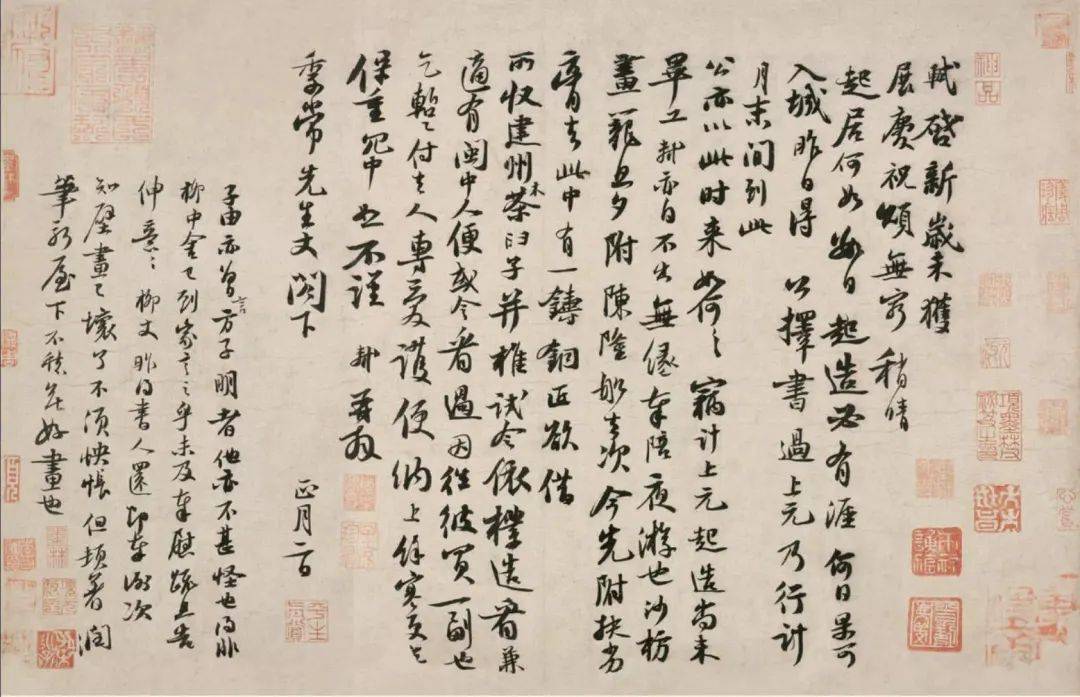 軾啓新歲未獲
展慶祝頌無窮稍晴
起居何如數日起造必有涯何日果可
入城昨日得公擇書過上元乃行計
月末間到此
公亦以此时来如何々竊計上元起造尚未
畢工軾亦自不出無緣奉陪夜游也沙枋
畫籠旦夕附陳隆船去次今先附扶劣
膏去此中有一鑄銅匠欲借
所收建州木茶臼子并椎試令依樣造看兼
適有閩中人便或令看過因往彼買一副也
乞暫付去人專愛護便納上餘寒更乞
保重冗中恕不謹軾再拜
季常先生丈閣下正月二日
子由亦曾言方子明者他亦不甚怪也得非
柳中舍已到家言之乎未及奉慰疏且告
伸意々柳丈昨得書人還即奉謝次
知壁畫已壞了不須怏悵但頓著潤
筆新屋下不愁無好畫也